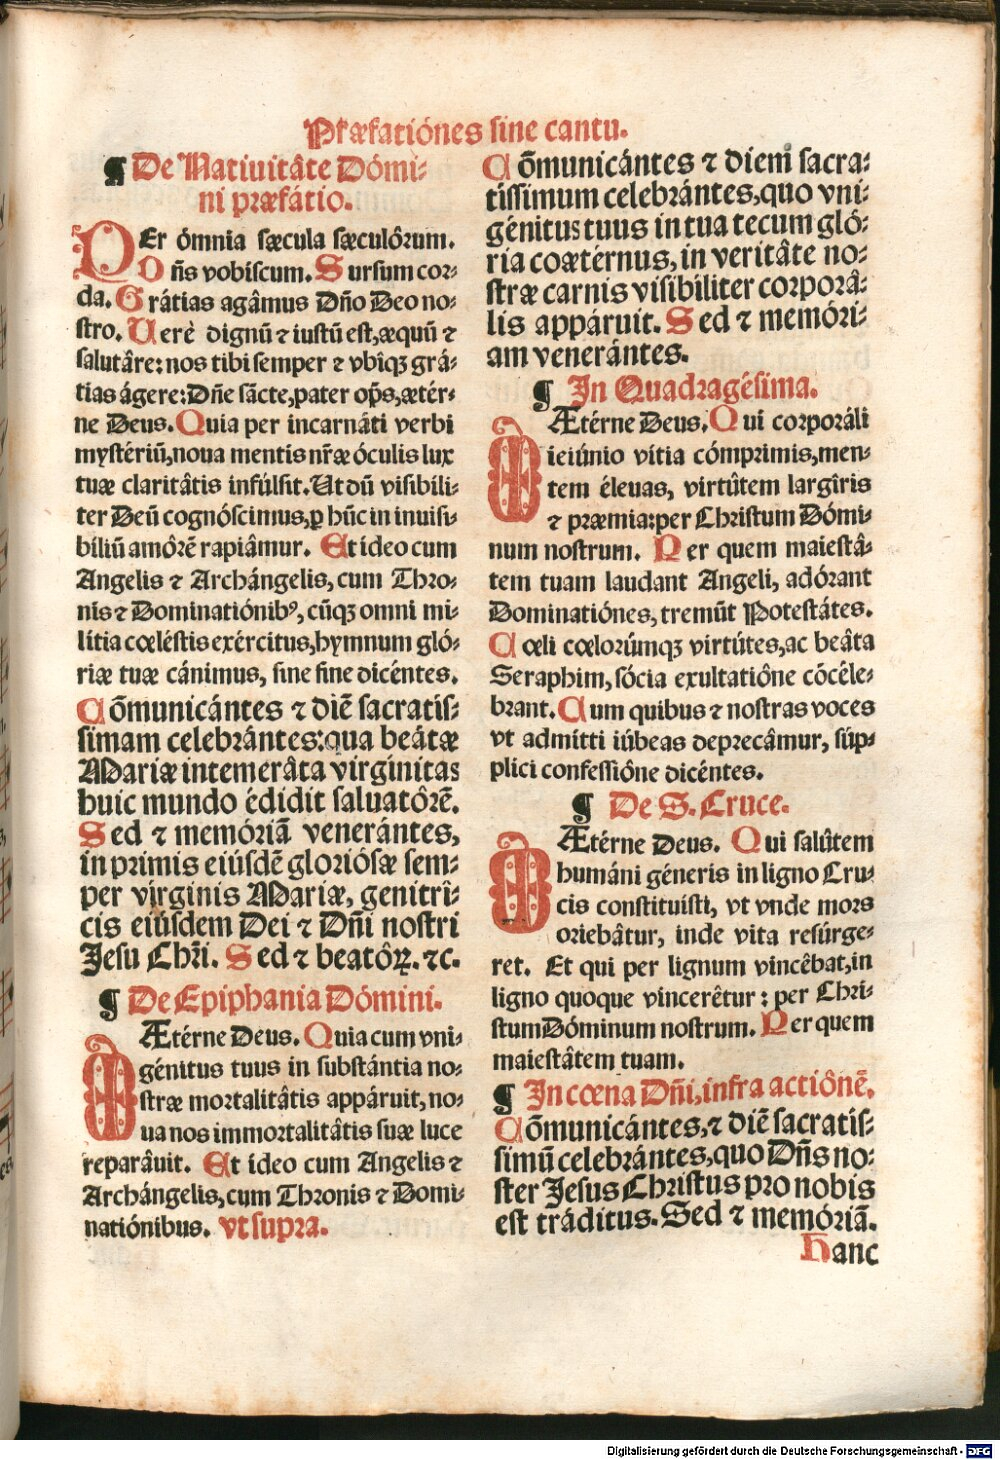 Præfatiónes sine cantu.
¶ De Natiuitâte Dómi-
ni præfátio.
PEr ómnia sæcula sæculôrum.
Dñs vobiscum. Sursum cor-
da. Grátias agâmus Dño Deo no-
stro. Uerè dignũ ⁊ iustũ est, æquũ ⁊
salutâre: nos tibi semper ⁊ vbîqꝫ grá-
tias ágere: Dñe sãcte, pater op̃s, ætér-
ne Deus. Quia per incarnâti verbi
mystériũ, noua mentis nr̃æ óculis lux
tuæ claritâtis infúlsit. Ut dũ visibili-
ter Deũ cognóscimus, ꝑ hũc in inuisi-
biliũ amôrẽ rapiâmur. Et ideo cum
Angelis ⁊ Archángelis, cum Thro-
nis ⁊ Dominatiónibꝰ, cũqꝫ omni mi-
lítia cœléstis exércitus, hymnum gló-
riæ tuæ cánimus, sine fine dicéntes.
Cõmunicántes ⁊ diẽ sacratís-
simam celebrántes: qua beátæ
Mariæ intemerâta virgínitas
huic mundo édidit saluatôrẽ.
Sed ⁊ memóriã venerántes,
in primis eiúsdẽ gloriósæ sem-
per vírginis Mariæ, genitrî-
cis eiúsdem Dei ⁊ Dñi nostri
Jesu Chr̃i. Sed ⁊ beatôꝝ. ⁊c.
¶ De Epiphania Dómini.
Ætérne Deus. Quia cum vni-
génitus tuus in substántia no-
stræ mortalitâtis appáruit, no-
ua nos immortalitâtis suæ luce
reparâuit. Et ideo cum Angelis ⁊
Archángelis, cum Thronis ⁊ Domi-
natiónibus. vt supra.
Cõmunicántes ⁊ diem sacra-
tíssimum celebrántes, quo vni-
génitus tuus in tua tecum gló-
ria coætérnus, in veritâte no-
stræ carnis visibíliter corporâ-
lis appáruit. Sed ⁊ memóri-
am venerántes.
¶ In Quadragésima.
Ætérne Deus. Qui corporáli
ieiúnio vítia cómprimis, men-
tem éleuas, virtûtem largîris
⁊ præmia: per Christum Dómi-
num nostrum. Per quem maiestâ-
tem tuam laudant Angeli, adórant
Dominatiónes, tremũt Potestátes.
Cœli cœlorúmqꝫ virtútes, ac beâta
Seraphim, sócia exultatiône cõcéle-
brant. Cum quibus ⁊ nostras voces
vt admítti iúbeas deprecâmur, súp-
plici confessiône dicéntes.
¶ De S. Cruce.
Ætérne Deus. Qui salûtem
humáni géneris in ligno Cru-
cis constituísti, vt vnde mors
oriebâtur, inde vita resúrge-
ret. Et qui per lignum vincêbat, in
ligno quoque vincerêtur: per Chri-
stum Dóminum nostrum. Per quem
maiestâtem tuam.
¶ In cœna Dñi, infra actiônẽ.
Cõmunicántes, ⁊ diẽ sacratís-
simũ celebrántes, quo Dñs no-
ster Jesus Christus pro nobis
est tráditus. Sed ⁊ memóriã.
Hanc
Digitalisierung gefördert durch die Deutsche Forschungsgemeinschaft - DFG